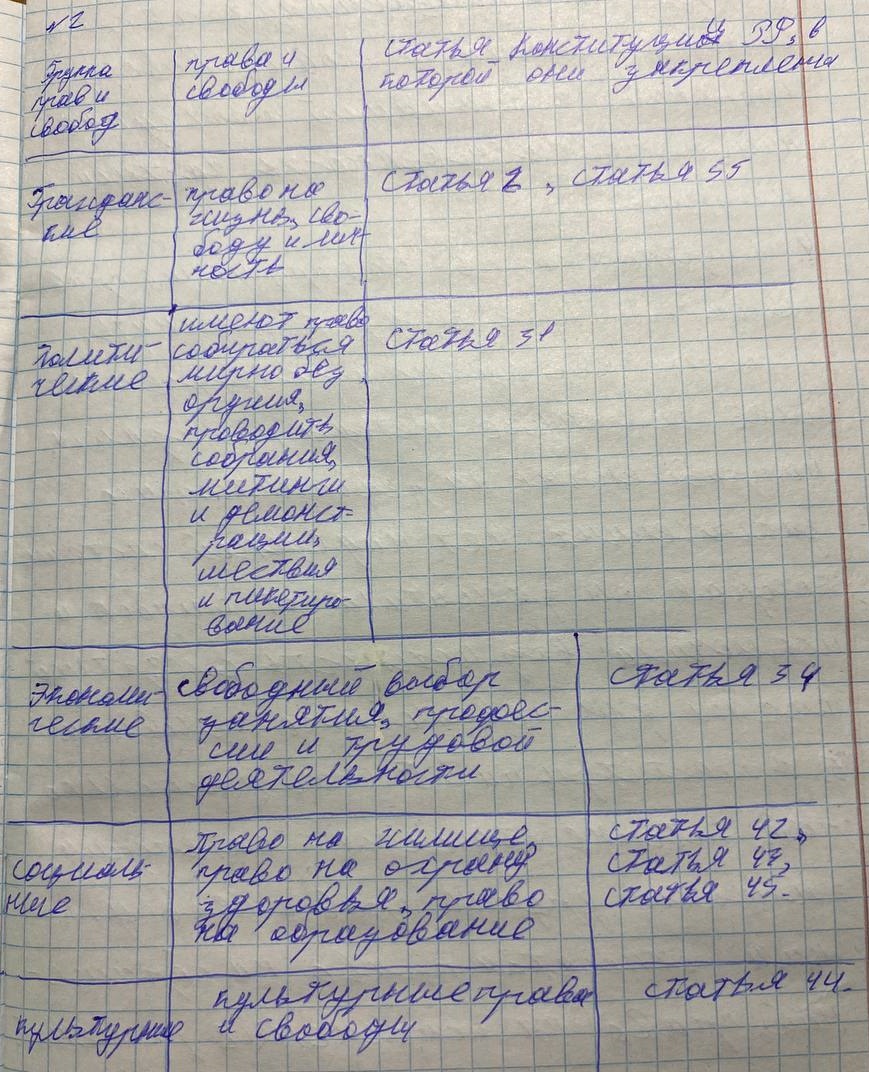 №2
Группа
прав и
свобод
права и
свободы
Статья Конституции РФ, в
которой они закреплены
Гражданс-
кие
право на
жизнь, сво-
боду и лич-
ность
Статья 2, статья 55
Полити-
ческие
имеют право
собираться
мирно без
оружия,
проводить
собрания,
митинги
и демонст-
рации,
шествия
и пикетиро-
вание
Статья 31
Экономи-
ческие
свободный выбор
занятия, профес-
сии и трудовой
деятельности
статья 34
социаль-
ные
Право на жилище,
право на охрану
здоровья, право
на образование
статья 42,
статья 43,
статья 45.
культурные
культурные права
и свободы
статья 44.